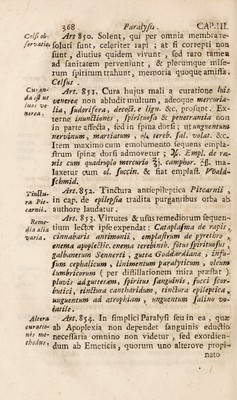 368 Paralysis. CAP. III.
Celsi ob-
servatio.
Art 850. Solent, qui per omnia membra re-
soluti sunt, celeriter rapi; at si correpti non
sunt, diutius quidem vivunt, sed raro tamen
ad sanitatem perveniunt, & plerumque mise-
rum spiritum trahunt, memoria quoque amissa.
Celsus.
Curan-
da est ut
venerea.
Art. 851. Cura hujus mali a curatione luis
venereæ non abludit multum, adeoque mercuria-
lia, sudorifera, decoct. e lign. &c. prosunt. Ex-
terne inunctiones, spirituosa & penetrantia non
in parte affecta, sed in spina dorsi; ut unguentum
nervinum, martiatum, ol. tereb. sal. volat. &c.
Item maximo cum emolumento sequens empla-
strum spinæ dorsi admovetur; ℞. Empl. de ra-
nis cum quadruplo mercurio ℥. camphor. ℥ß. ma-
laxetur cum ol. succin. & fiat emplast. Wald-
schmid.
Tinctu-
ra Pit-
carnii.
Art. 852. Tinctura antiepileptica Pitcarnii
in cap. de epilepsia tradita purgantibus orba ab
authore laudatur.
Reme-
dia alia
varia.
Art. 853. Virtutes & usus remediorum sequen-
tium lector ipse expendat: Cataplasma de rapis,
cinnabaris antimonii, emplastrum de pyretro,
enema apoplectic. enema terebinth. fotus spirituosus,
galbanetum Sennerti, gutta Goddardiana, infu-
sum cephalicum, linimentum paralyticum, oleum
lumbricorum (per distillationem mira præstat)
pluvis ad gutteram, spiritus sanguinis, succi scor-
butici, tinctura cantharidum, tinctura epileptica,
unguentum ad atrophiam, unguentum salino vo-
latile.
Altera
curatio-
nis me-
thodus.
Art. 854. In simplici Paralysi seu in ea, quæ
ab Apoplexia non dependet sanguinis eductio
necessaria omnino non videtur, sed exordien-
dum ab Emeticis, quorum uno alterove propi-
nato